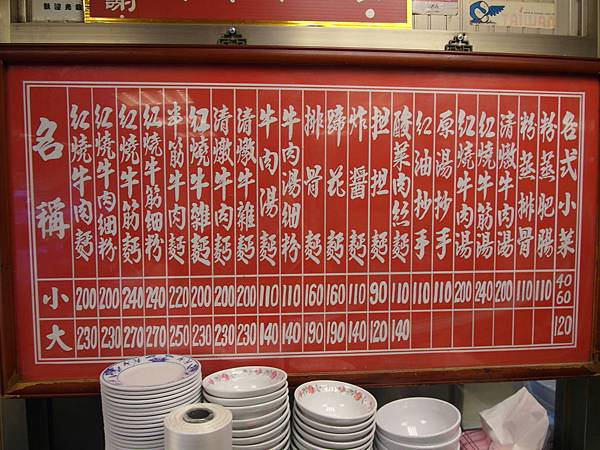 謝
TAIWAN
名稱
紅燒牛肉麵
紅燒牛肉細粉
紅燒牛筋麵
紅燒牛筋細粉
半筋牛肉麵
紅燒牛雜麵
清燉牛肉麵
清燉牛雜麵
牛肉湯麵
牛肉湯細粉
排骨麵
蹄花麵
炸醬麵
担担麵
酸菜肉絲麵
紅油抄手
原湯抄手
紅燒牛肉湯
紅燒牛筋湯
清燉牛肉湯
粉蒸排骨
粉蒸肥腸
各式小菜
小 200 200 240 240 220 200 200 200 110 110 160 160 110 90 110 110 110 200 240 200 110 110 40 60
大 230 230 270 270 250 230 230 230 140 140 190 190 140 120 140 120